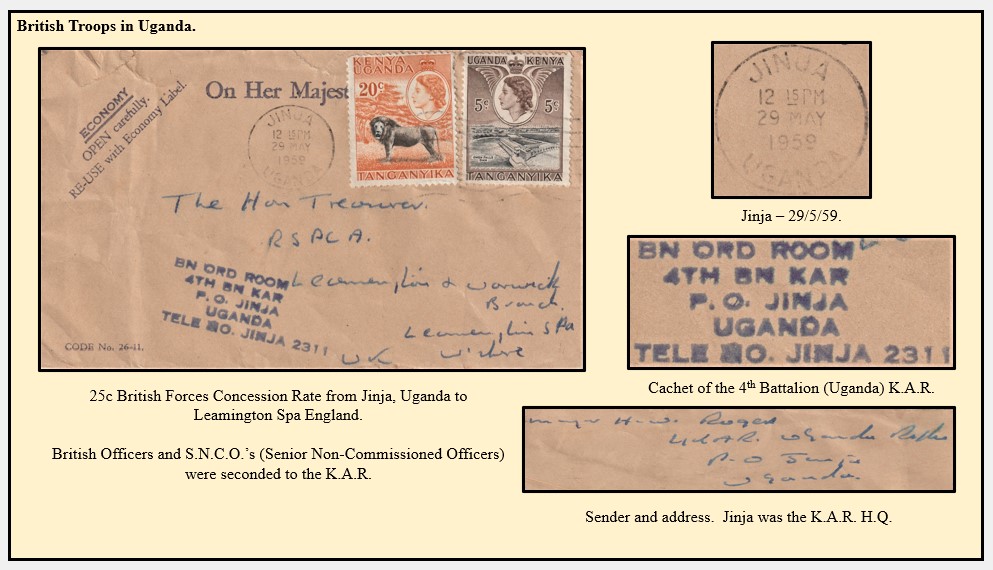 British Troops in Uganda.
ECONOMY
OPEN carefully.
RE-USE with Economy Label.
On Her Majest
JINJA
12 15 PM
29 MAY
1959
UGANDA
KENYA
UGANDA
20c
TANGANYIKA
UGANDA KENYA
5c 5c
TANGANYIKA
The Hon Treasurer.
RSPCA.
Leamington & Warwick
Branch.
Leamington Spa
UK
BN ORD ROOM
4TH BN KAR
P. O. JINJA
UGANDA
TELE NO. JINJA 2311
CODE No. 26-41.
25c British Forces Concession Rate from Jinja, Uganda to
Leamington Spa England.
British Officers and S.N.C.O.’s (Senior Non-Commissioned Officers)
were seconded to the K.A.R.
JINJA
12 15 PM
29 MAY
1959
UGANDA
Jinja – 29/5/59.
BN ORD ROOM
4TH BN KAR
P. O. JINJA
UGANDA
TELE NO. JINJA 2311
Cachet of the 4th Battalion (Uganda) K.A.R.
Major H.W. Rogers
4 KAR. Uganda Rifles
P.O Jinja
Uganda.
Sender and address. Jinja was the K.A.R. H.Q.